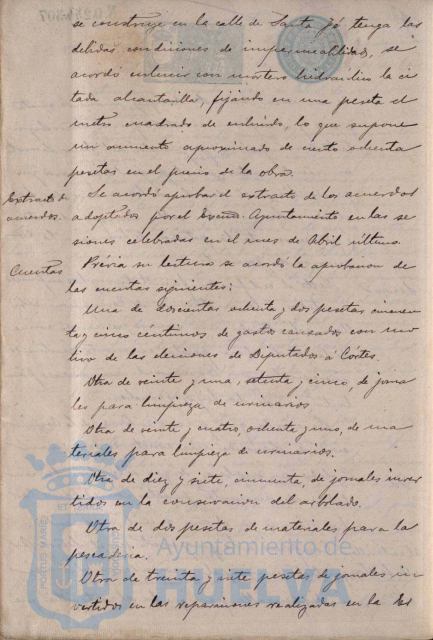 se construye en la calle de Santa Fé, tenga las
debidas condiciones de impermeabilidad, se
acordó enlucir con mortero hidraulico la ci
tada alcantarilla, fijando en una peseta el
metro cuadrado de enlucido, lo que supone
un aumento aproximado de ciento ochenta
pesetas en el precio de la obra.
Extracto de
acuerdos.
Se acordó aprobar el extracto de los acuerdos
adoptados por el Excmo. Ayuntamiento en las se
siones celebradas en el mes de Abril último.
Cuentas
Prévia su lectura se acordó la aprobacion de
las cuentas siguientes:
Una de doscientas ochenta y dos pesetas cincuen
ta y cinco céntimos de gastos causados con mo
tivo de las elecciones de Diputados á Córtes.
Otra de veinte y una, setenta y cinco, de jorna
les para limpieza de urinarios
Otra de veinte y cuatro, ochenta y uno, de ma
teriales para limpieza de urinarios.
Otra de diez y siete, cincuenta, de jornales inver
tidos en la conservacion del arbolado.
Otra de dos pesetas de materiales para la
pescaderia.
Otra de treinta y siete pesetas de jornales in
vertidos en las reparaciones realizadas en la
Ayuntamiento de
HUELVA